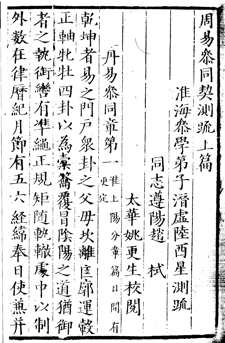 周易參同契測疏上篇
淮海參學弟子潛虛陸西星測疏
同志遵陽趙 栻
太華姚更生校閱
丹易參同章第一
乾坤者易之門戶衆卦之父母坎離匡廓運轂
正軸牝牡四卦以為橐籥覆冒陰陽之道猶御
者之執銜轡有準繩正規矩隨軌轍處中以制
外數在律曆紀月節有五六經緯奉日使兼并